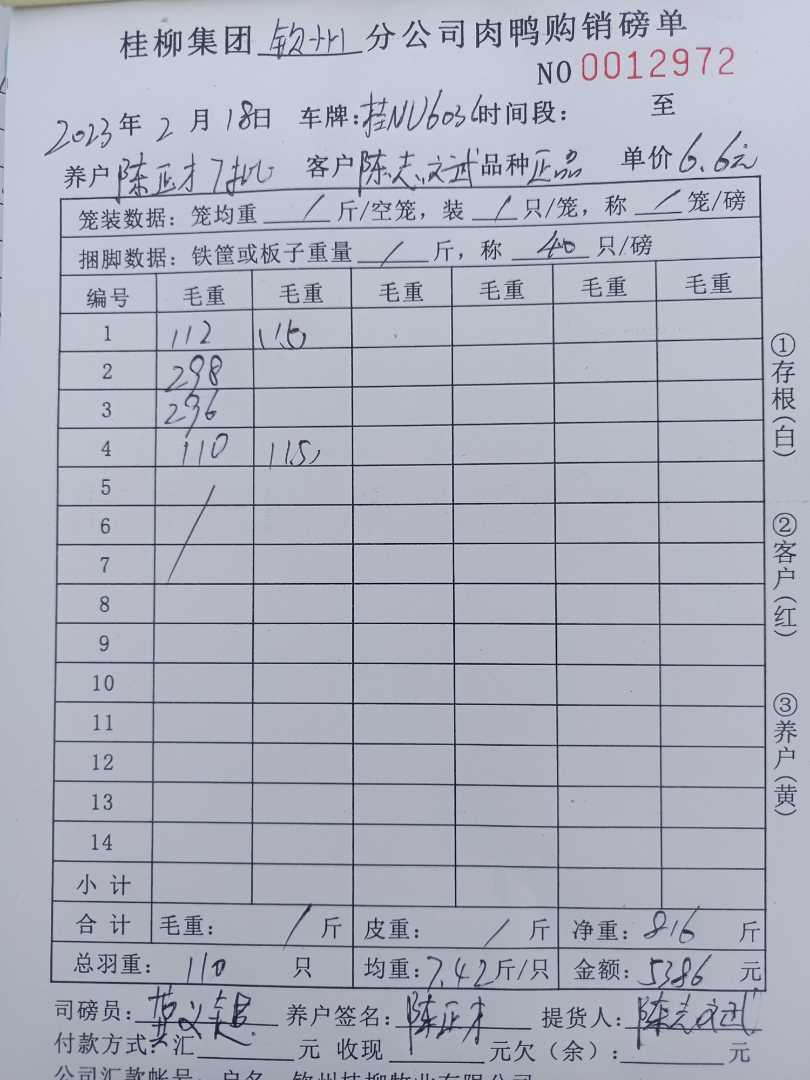 桂柳集团 钦州 分公司肉鸭购销磅单
NO 0012972
2023年 2 月 18日 车牌:桂NU6036 时间段: 至
养户 陈正才 客户 陈志文武 品种 正品 单价 6.6元
笼装数据: 笼均重 / 斤/空笼, 装 / 只/笼, 称 / 笼/磅
捆脚数据: 铁筐或板子重量 / 斤, 称 40 只/磅
编号 毛重 毛重 毛重 毛重 毛重 毛重
1 112
2 298
3 296
4 110
5 /
6
7
8
9
10
11
12
13
14
小 计
合 计 毛重: / 斤 皮重: / 斤 净重: 816 斤
总羽重: 110 只 均重: 7.42斤/只 金额: 5386 元
司磅员: 养户签名: 陈正才 提货人: 陈志文武
付款方式: 汇 元 收现 元欠(余): 元
公司汇款帐号: 户名: 钦州桂柳牧业有限公司
①存根(白)
②客户(红)
③养户(黄)